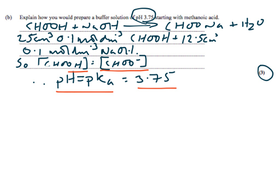 (b) Explain how you would prepare a buffer solution of pH 3.75 starting with methanoic acid.
CHOOH + NaOH → CHOONa + H₂O
25cm³ 0.1moldm⁻³ CHOOH + 12.5cm³
0.1 moldm⁻³ NaOH.
So [CHOOH] = [CHOO⁻]
(3)
∴ pH = pKa = 3.75